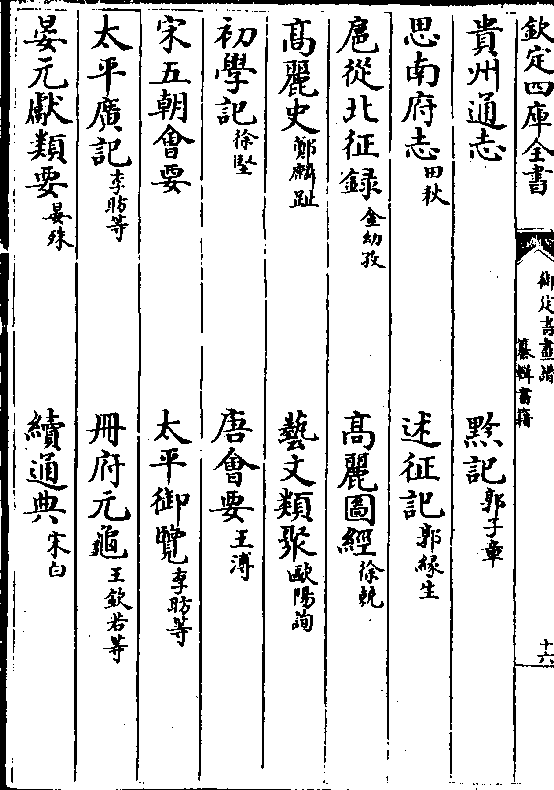 欽定四庫全書
御定書畫譜
纂輯書籍
十六
貴州通志
黔記郭子章
思南府志田秋
述征記郭緣生
扈從北征録金幼孜
高麗圖經徐兢
高麗史鄭麟趾
藝文類聚歐陽詢
初學記徐堅
唐會要王溥
宋五朝會要
太平御覽李昉等
太平廣記李昉等
冊府元龜王欽若等
晏元獻類要晏殊
續通典宋白